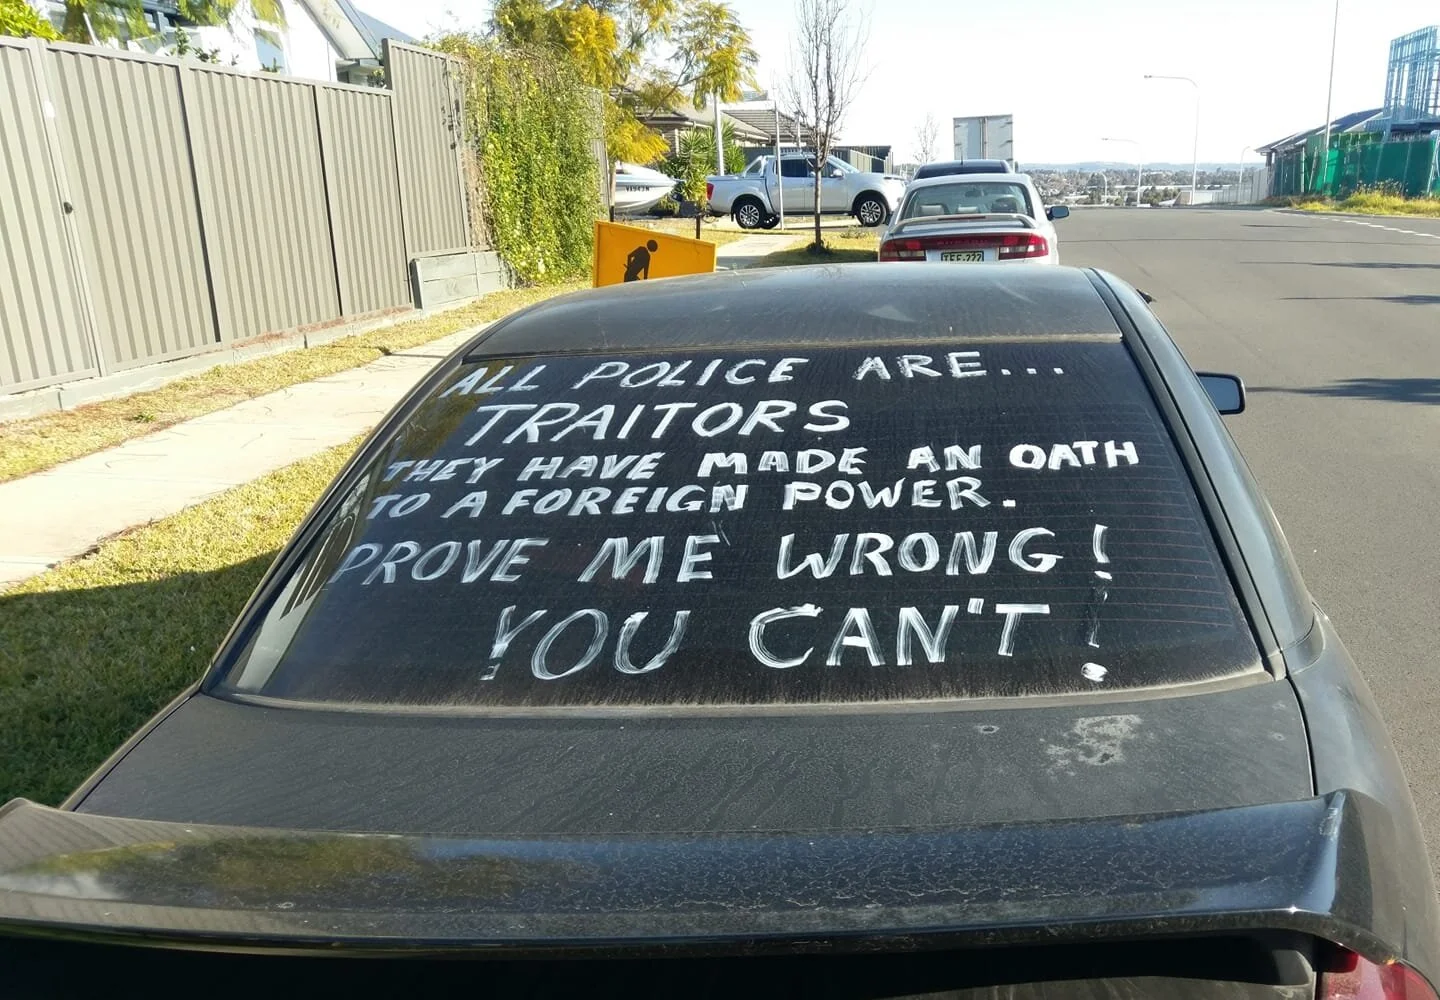 ALL POLICE ARE...
TRAITORS
THEY HAVE MADE AN OATH
TO A FOREIGN POWER.
PROVE ME WRONG!
YOU CAN'T!